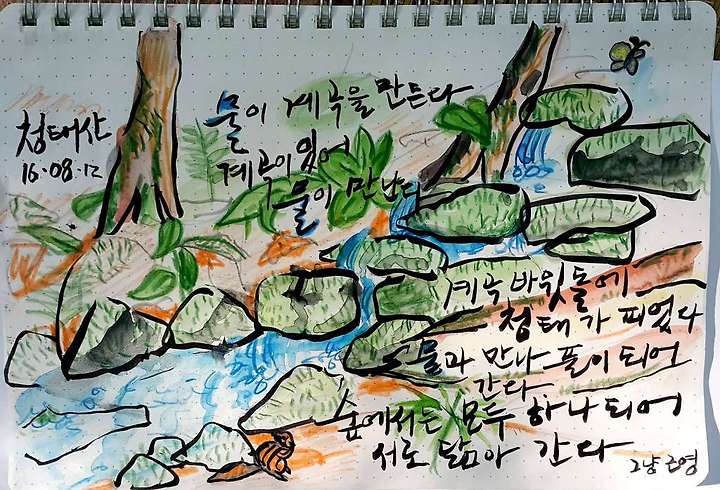 청태산
16.08.12
물이 계곡을 만든다
계곡이 있어
물이 만난다
계곡 바윗돌에
청태가 피었다
물과 만나 풀이 되어
간다
숲에서는 모두 하나 되어
서로 닮아 간다
그냥 근영